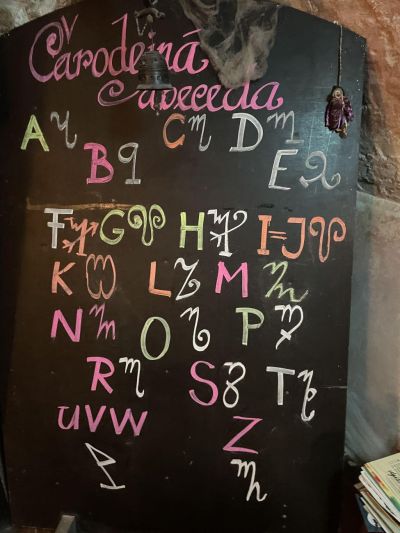 Čarodějná
abeceda
A C D
B E
F G H I=J
K L M
N O P
R S T
UVW Z